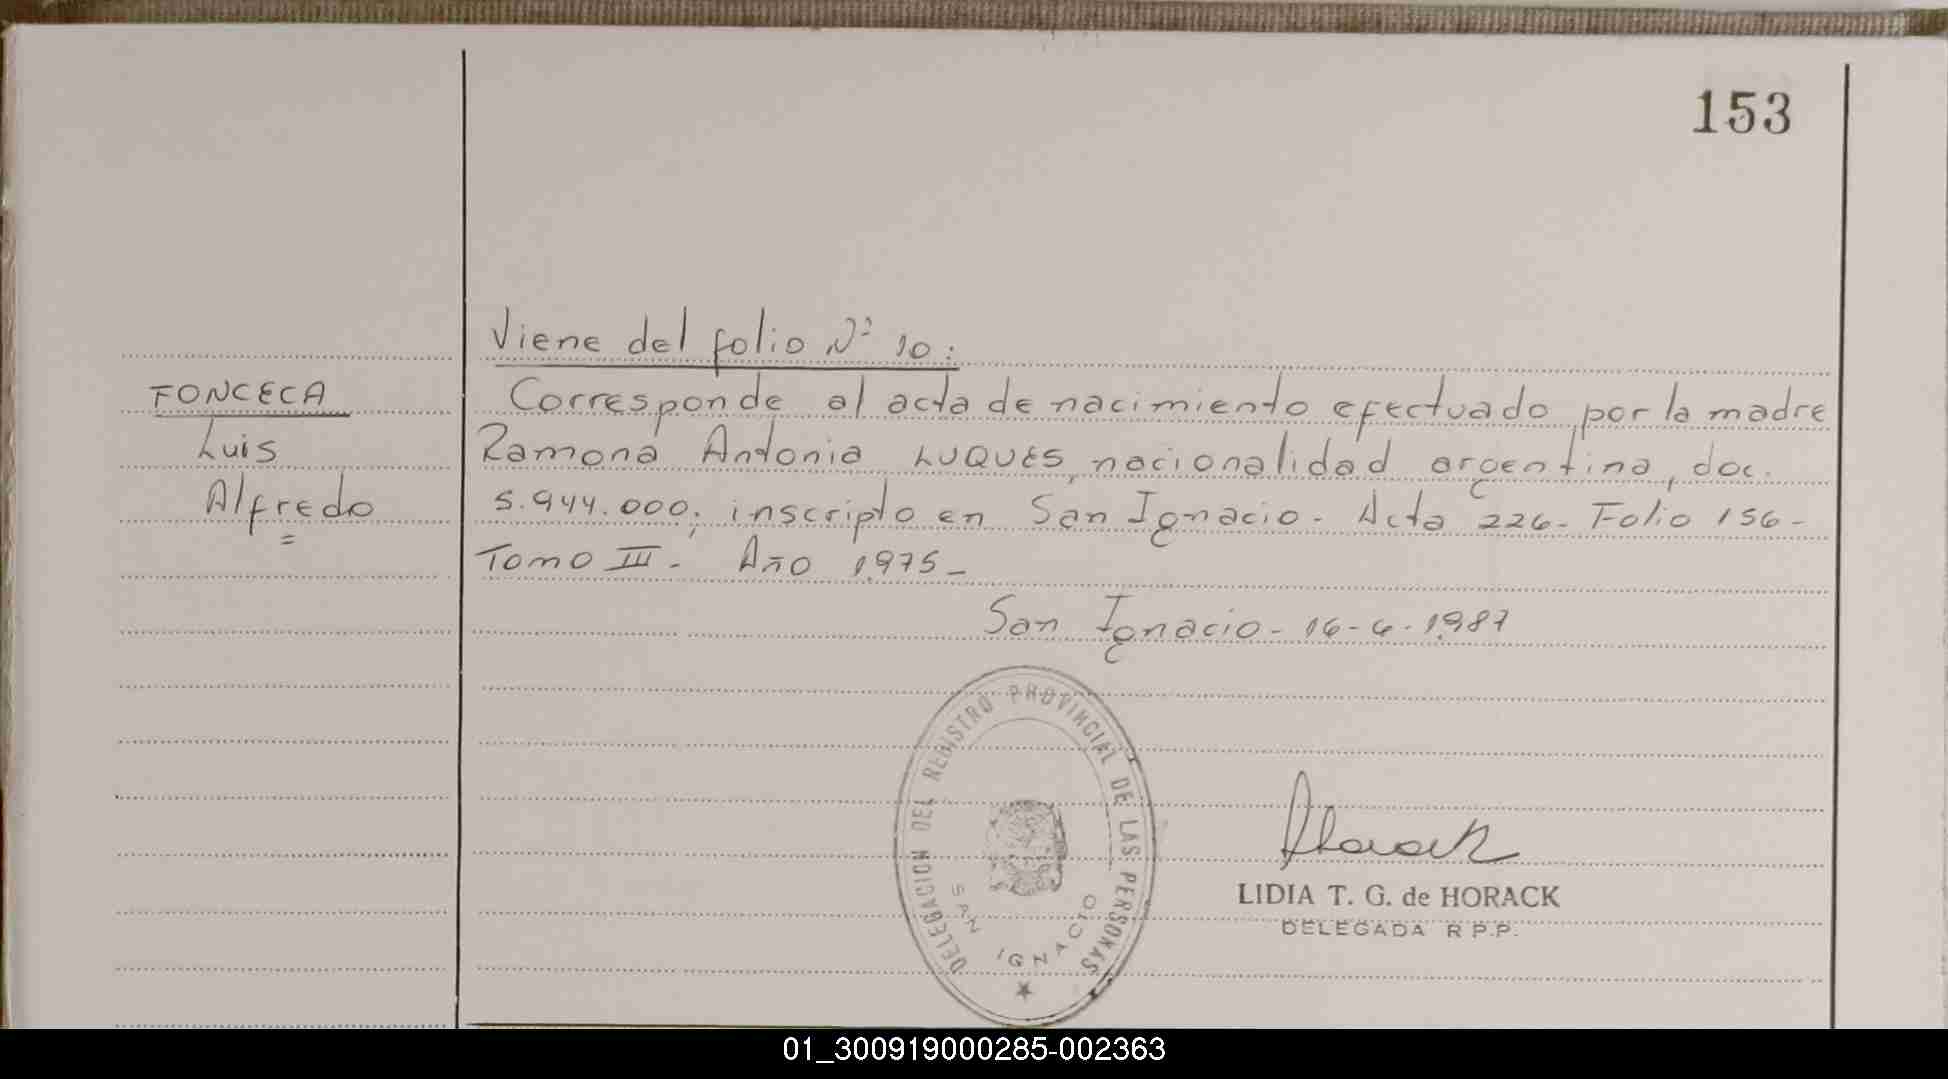 153
Viene del folio Nº 10:
FONCECA
Luis
Alfredo
Corresponde al acta de nacimiento efectuado por la madre
Ramona Antonia LUQUES, nacionalidad argentina, doc.
5.944.000; inscripto en San Ignacio - Acta 226 - Folio 156 -
Tomo III - Año 1975 -
San Ignacio - 16-6-1987
DELEGACION DEL REGISTRO PROVINCIAL DE LAS PERSONAS
SAN IGNACIO
Horack
LIDIA T. G. de HORACK
DELEGADA R P.P.
01_300919000285-002363